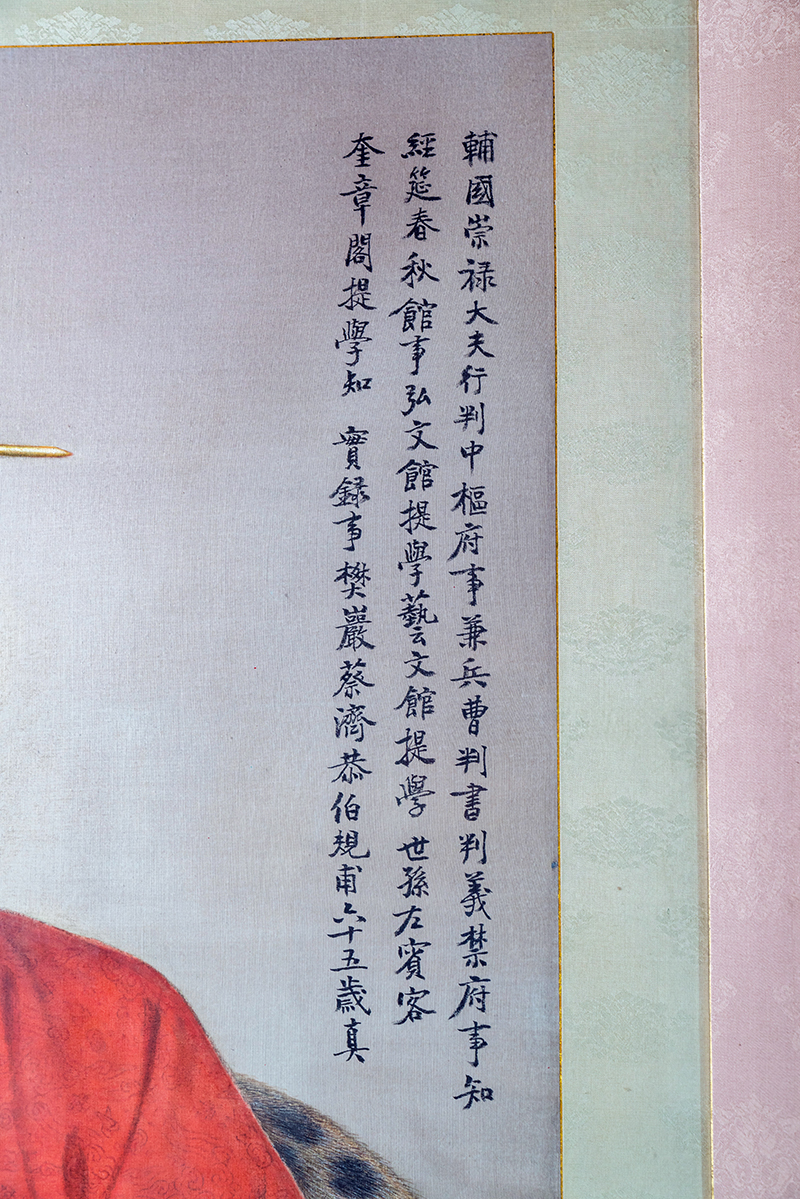 輔國崇禄大夫行判中樞府事兼兵曹判書判義禁府事知
經筵春秋館事弘文館提學藝文館提學 世孫左賓客
奎章閣提學知 實録事樊巖蔡濟恭伯規甫六十五歲真